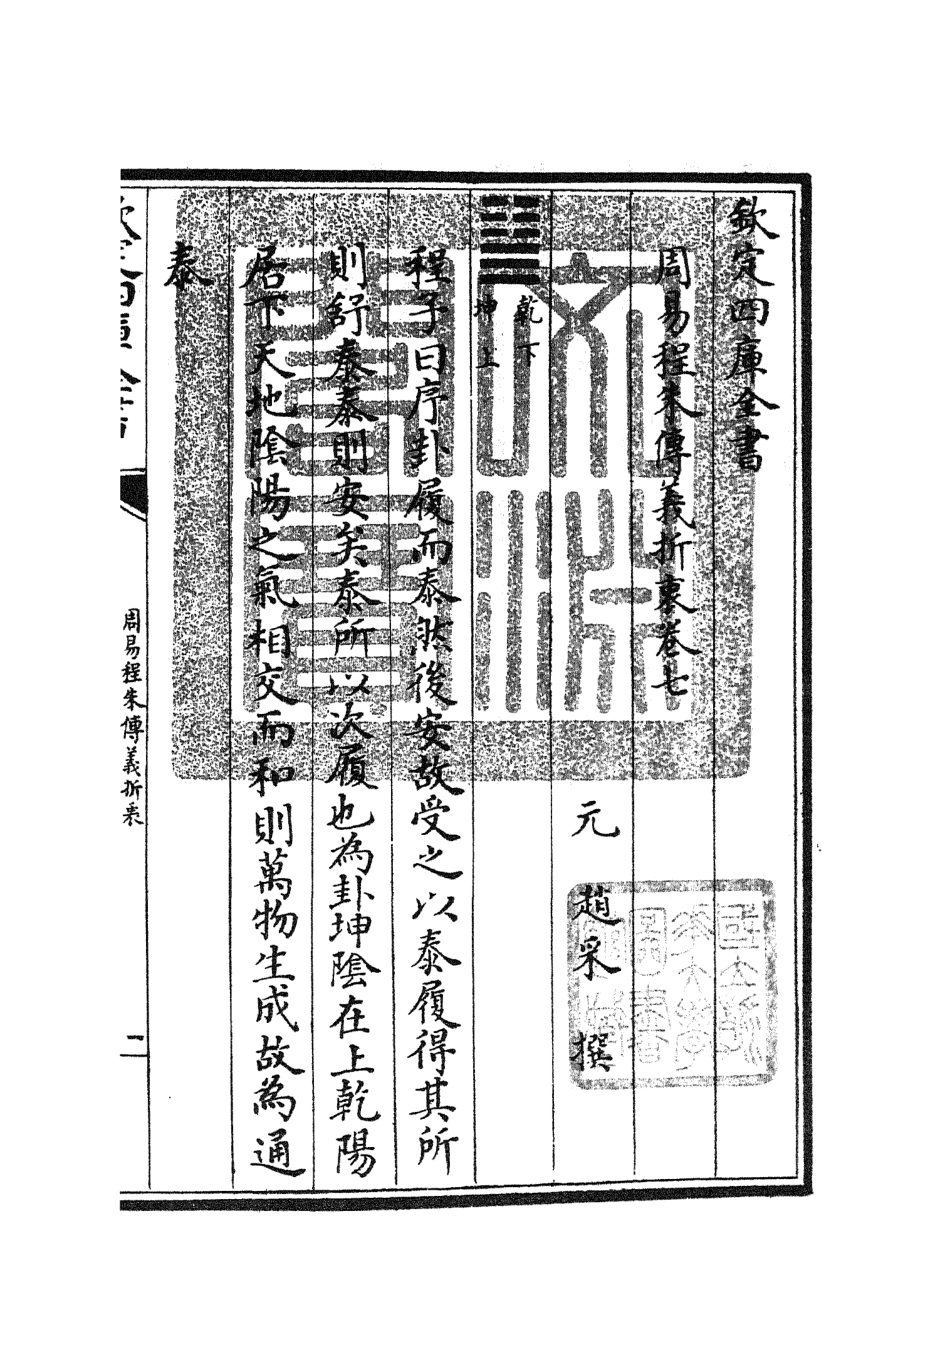 欽定四庫全書
周易程朱傳義折衷卷七
元 趙采 撰
乾下
坤上
程子曰序卦履而泰然後安故受之以泰履得其所
則舒泰泰則安矣泰所以次履也為卦坤陰在上乾陽
居下天地陰陽之氣相交而和則萬物生成故為通
泰
欽定四庫全書
周易程朱傳義折衷
一